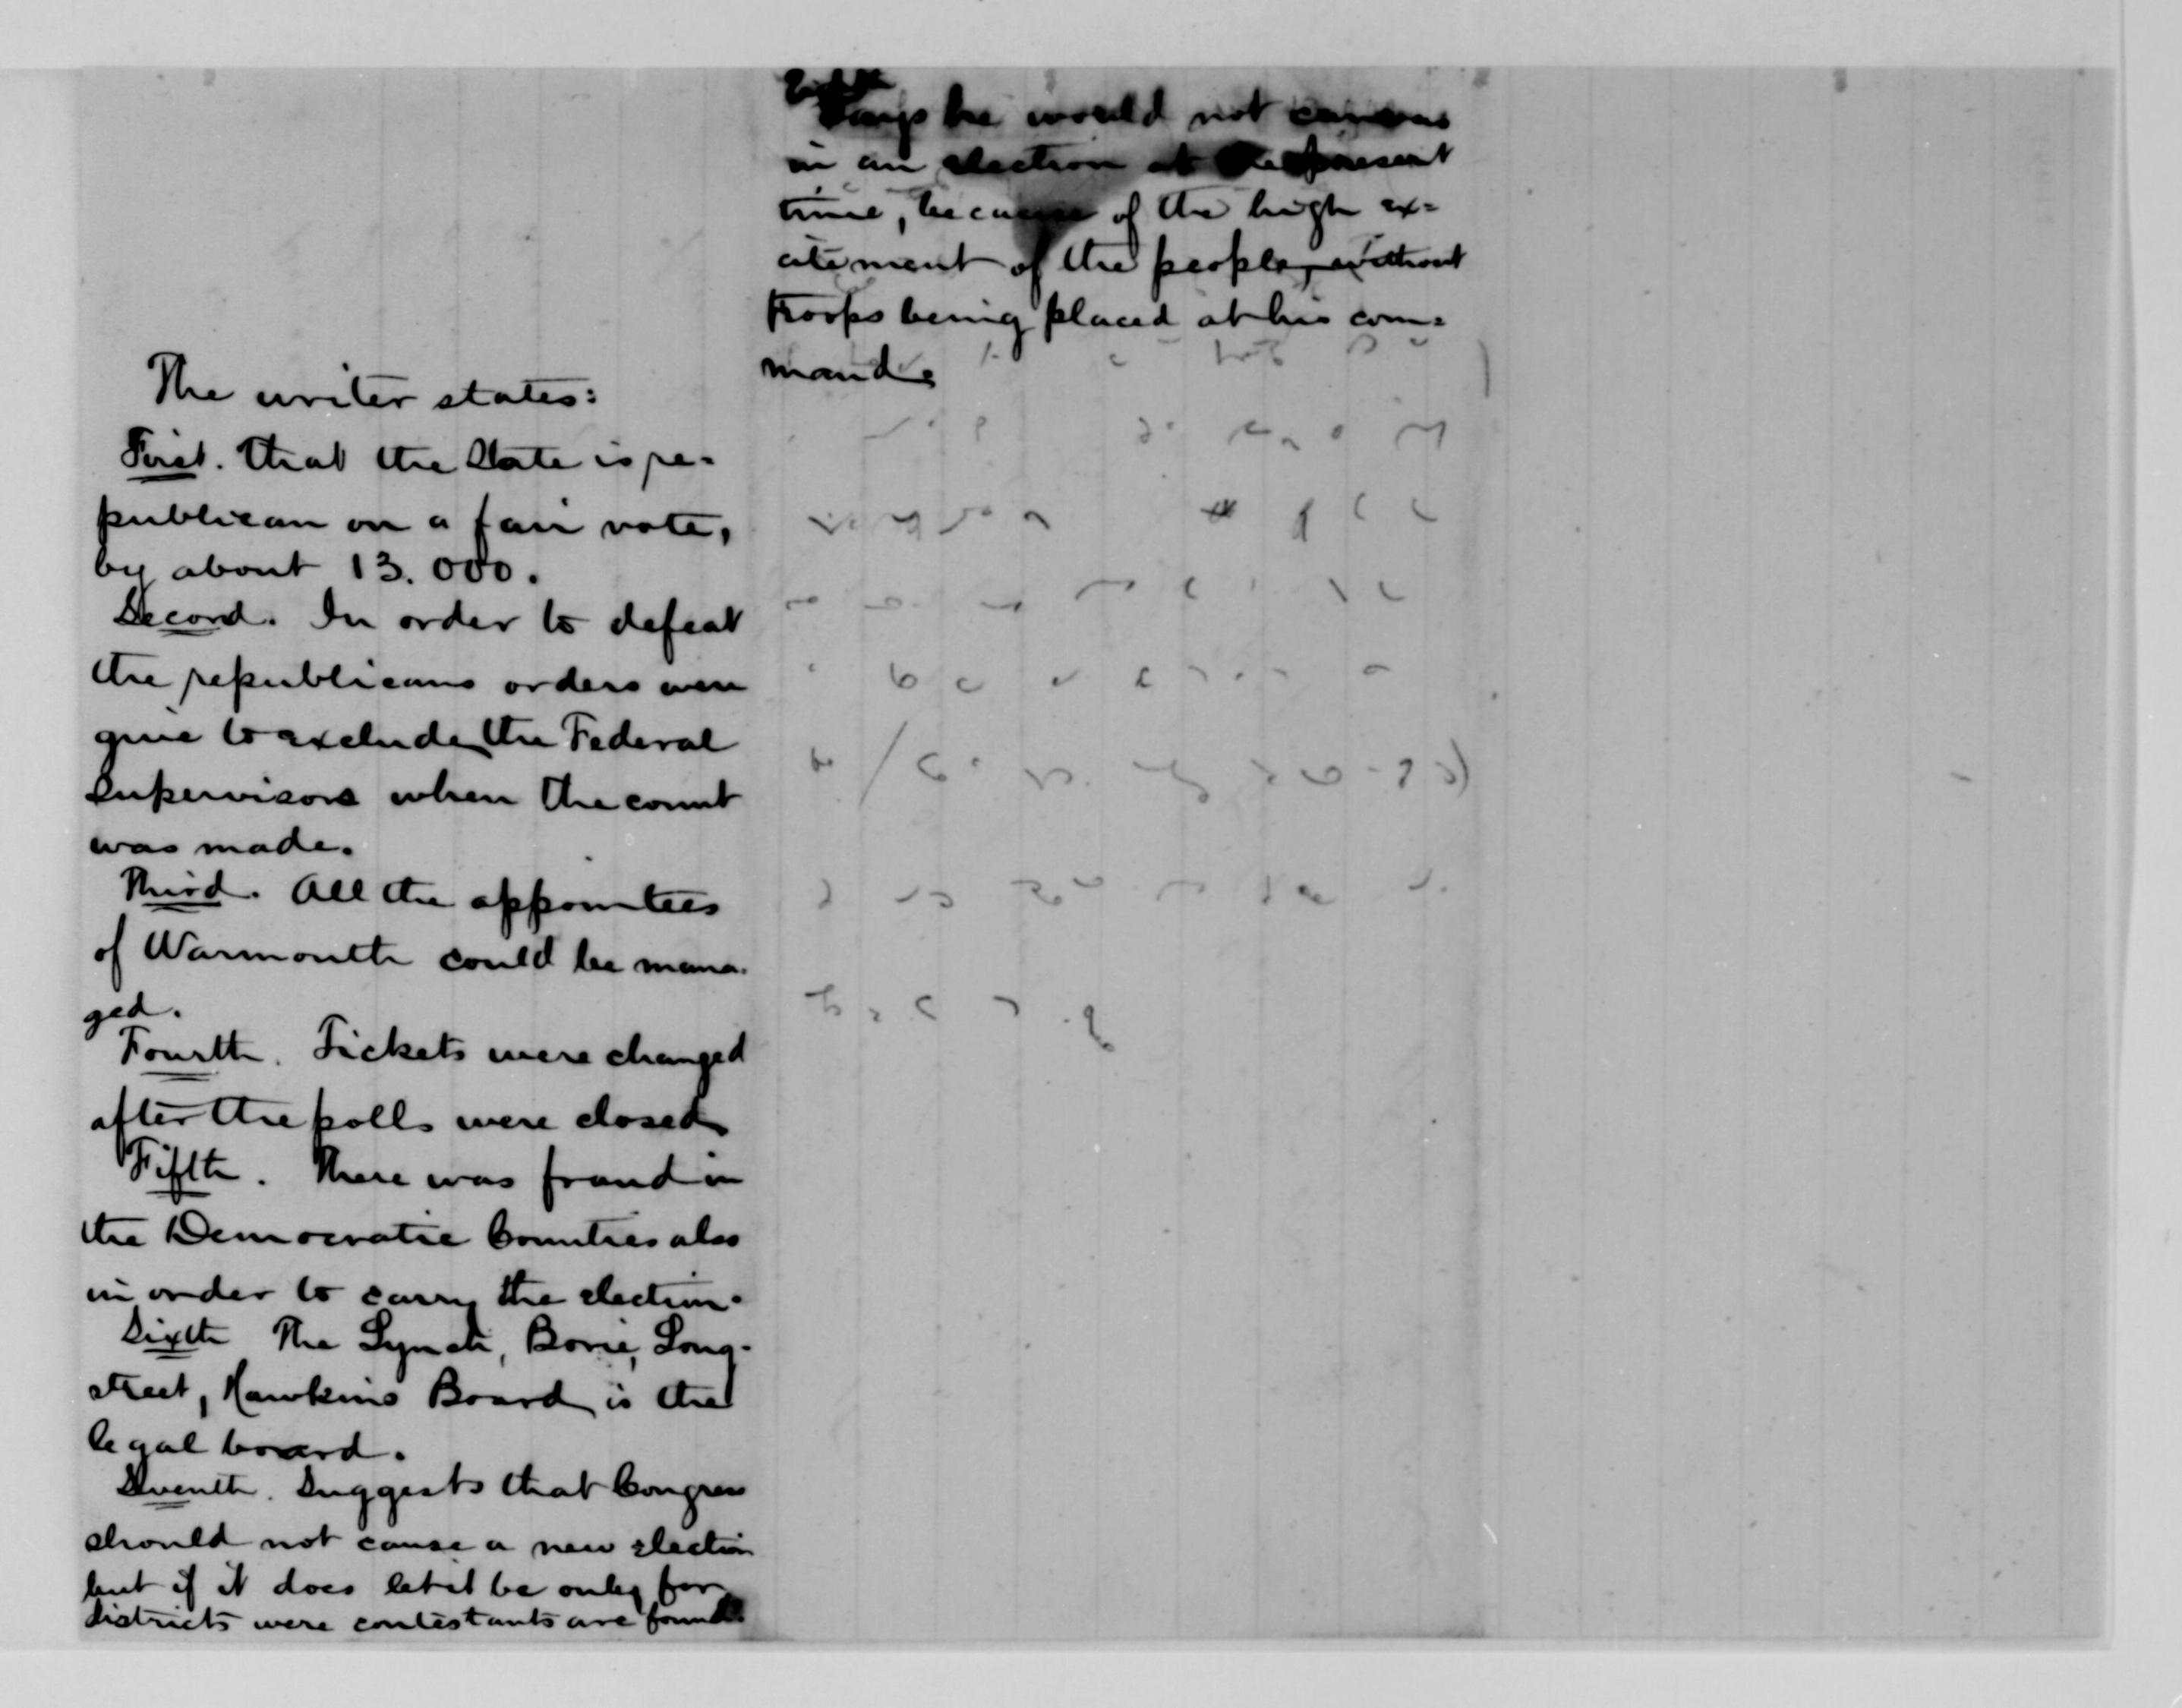 The writer states:
First. That the State is re-
publican on a fair vote,
by about 13.000.
Second. In order to defeat
the republicans orders were
give to exclude the Federal
Supervisors when the count
was made.
Third. All the appointees
of Warmouth could be mana-
ged.
Fourth. Tickets were changed
after the polls were closed
Fifth. There was fraud in
the Democratic Counties also
in order to carry the election.
Sixth The Lynch, Bovie, Long-
street, Hawkins Board is the
legal board.
Seventh. Suggests that Congress
should not cause a new election
but if it does let it be only for
districts were contestants are found.
Eighth
Says he would not canvas
in an election at the present
time, because of the high ex=
citement of the people, without
troops being placed at his com=
mand.